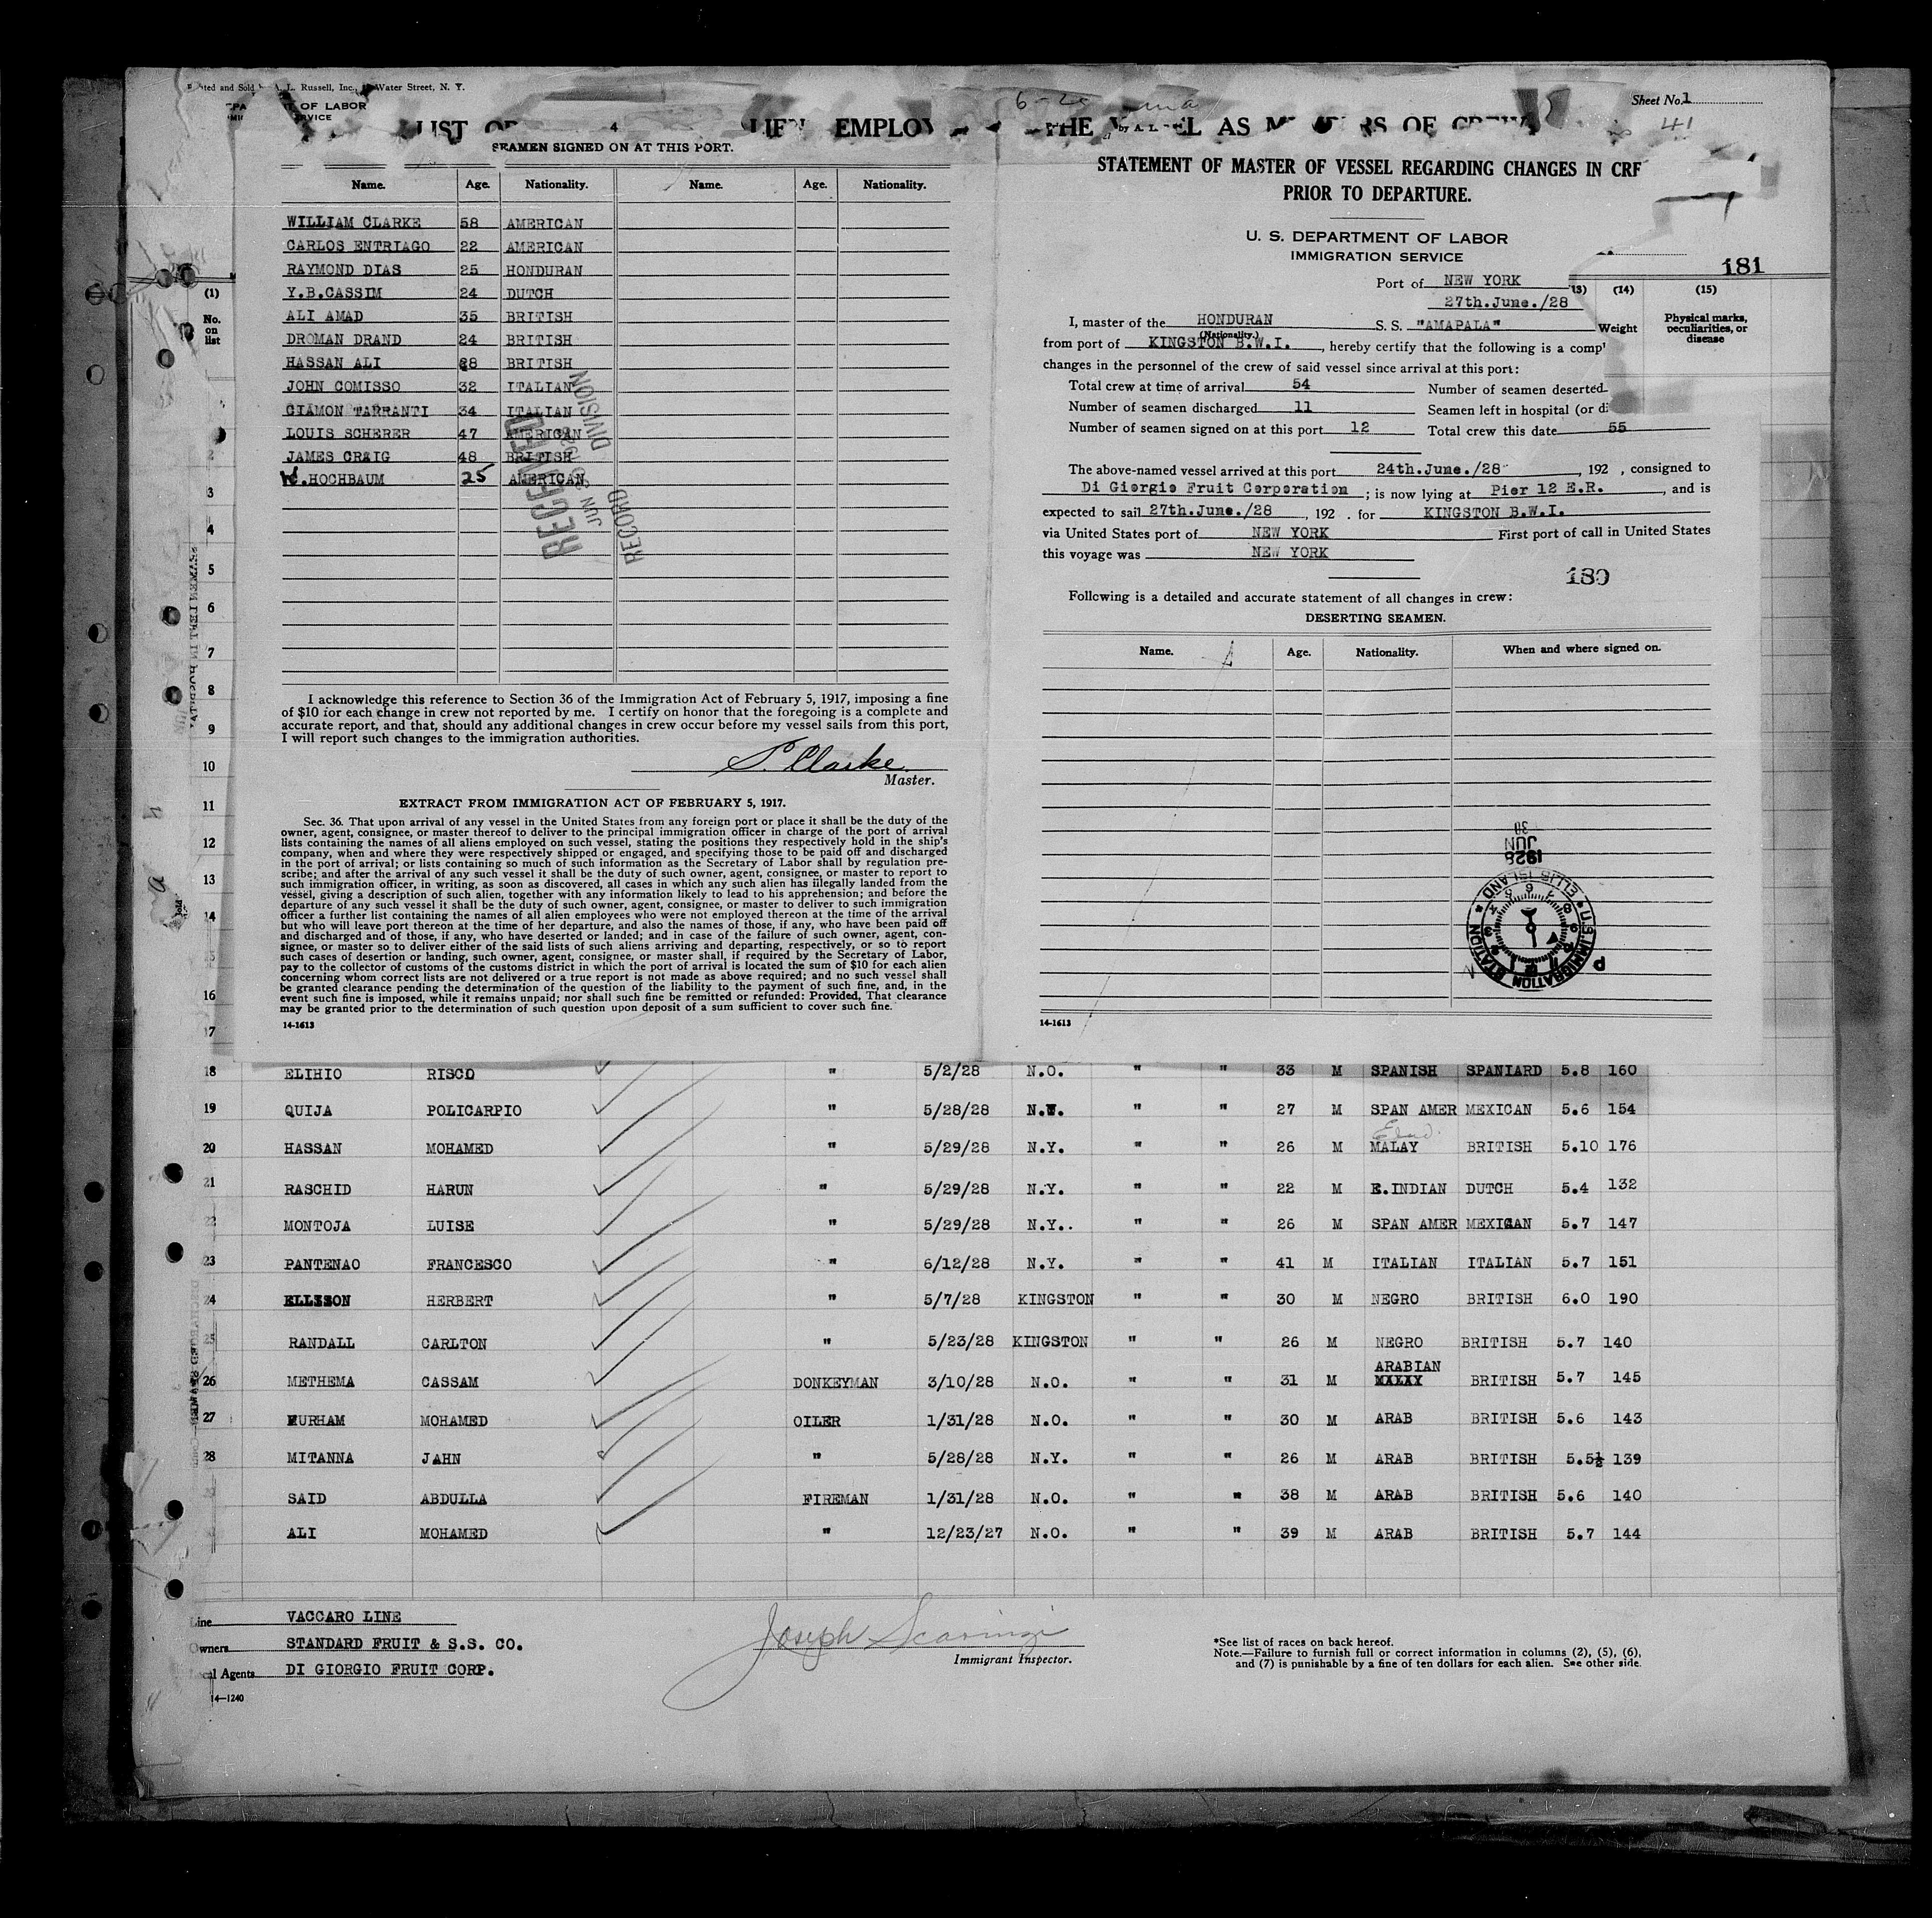 A. L. Russell, Inc., Water Street, N. Y.
OF LABOR
Sheet No. 1
41
LIST OF
EMPLOY
THE
AS
OF
4
SEAMEN SIGNED ON AT THIS PORT.
Name. Age. Nationality. Name. Age. Nationality.
WILLIAM CLARKE 58 AMERICAN
CARLOS ENTRIAGO 22 AMERICAN
RAYMOND DIAS 25 HONDURAN
Y.B.CASSIM 24 DUTCH
ALI AMAD 35 BRITISH
DROMAN DRAND 24 BRITISH
HASSAN ALI 28 BRITISH
JOHN COMISSO 32 ITALIAN
GIAMON TARRANTI 34 ITALIAN
LOUIS SCHERER 47 AMERICAN
JAMES CRAIG 48 BRITISH
W.HOCHBAUM 25 AMERICAN
RECEIVED
JUN
RECORD DIVISION
I acknowledge this reference to Section 36 of the Immigration Act of February 5, 1917, imposing a fine
of $10 for each change in crew not reported by me. I certify on honor that the foregoing is a complete and
accurate report, and that, should any additional changes in crew occur before my vessel sails from this port,
I will report such changes to the immigration authorities.
S. Clarke
Master.
EXTRACT FROM IMMIGRATION ACT OF FEBRUARY 5, 1917.
Sec. 36. That upon arrival of any vessel in the United States from any foreign port or place it shall be the duty of the
owner, agent, consignee, or master thereof to deliver to the principal immigration officer in charge of the port of arrival
lists containing the names of all aliens employed on such vessel, stating the positions they respectively hold in the ship's
company, when and where they were respectively shipped or engaged, and specifying those to be paid off and discharged
in the port of arrival; or lists containing so much of such information as the Secretary of Labor shall by regulation pre-
scribe; and after the arrival of any such vessel it shall be the duty of such owner, agent, consignee, or master to report to
such immigration officer, in writing, as soon as discovered, all cases in which any such alien has illegally landed from the
vessel, giving a description of such alien, together with any information likely to lead to his apprehension; and before the
departure of any such vessel it shall be the duty of such owner, agent, consignee, or master to deliver to such immigration
officer a further list containing the names of all alien employees who were not employed thereon at the time of the arrival
but who will leave port thereon at the time of her departure, and also the names of those, if any, who have been paid off
and discharged and of those, if any, who have deserted or landed; and in case of the failure of such owner, agent, con-
signee, or master so to deliver either of the said lists of such aliens arriving and departing, respectively, or so to report
such cases of desertion or landing, such owner, agent, consignee, or master shall, if required by the Secretary of Labor,
pay to the collector of customs of the customs district in which the port of arrival is located the sum of $10 for each alien
concerning whom correct lists are not delivered or a true report is not made as above required; and no such vessel shall
be granted clearance pending the determination of the question of the liability to the payment of such fine, and, in the
event such fine is imposed, while it remains unpaid; nor shall such fine be remitted or refunded: Provided, That clearance
may be granted prior to the determination of such question upon deposit of a sum sufficient to cover such fine.
14-1613
STATEMENT OF MASTER OF VESSEL REGARDING CHANGES IN CRE
PRIOR TO DEPARTURE.
U. S. DEPARTMENT OF LABOR
IMMIGRATION SERVICE
Port of NEW YORK
27th.June./28
I, master of the HONDURAN S. S. "AMAPALA"
(Nationality.)
from port of KINGSTON B.W.I., hereby certify that the following is a comp
changes in the personnel of the crew of said vessel since arrival at this port:
Total crew at time of arrival 54 Number of seamen deserted
Number of seamen discharged 11 Seamen left in hospital (or di
Number of seamen signed on at this port 12 Total crew this date 55
The above-named vessel arrived at this port 24th.June./28, 192 , consigned to
Di Giorgio Fruit Corporation ; is now lying at Pier 12 E.R., and is
expected to sail 27th.June./28, 192 . for KINGSTON B.W.I.
via United States port of NEW YORK First port of call in United States
this voyage was NEW YORK
180
Following is a detailed and accurate statement of all changes in crew:
DESERTING SEAMEN.
Name. Age. Nationality. When and where signed on.
1928
JUN
U.S. IMMIGRATION STATION
ELLIS ISLAND
14-1613
181
(1)
No.
on
list
(13) (14) (15)
Weight
Physical marks,
peculiarities, or
disease
2
3
4
5
6
7
8
9
10
11
12
13
14
16
17
18 ELIHIO RISCO " 5/2/28 N.O. " " 33 M SPANISH SPANIARD 5.8 160
19 QUIJA POLICARPIO " 5/28/28 N.Y. " " 27 M SPAN AMER MEXICAN 5.6 154
20 HASSAN MOHAMED " 5/29/28 N.Y. " " 26 M MALAY BRITISH 5.10 176
21 RASCHID HARUN " 5/29/28 N.Y. " " 22 M E.INDIAN DUTCH 5.4 132
22 MONTOJA LUISE " 5/29/28 N.Y.. " " 26 M SPAN AMER MEXICAN 5.7 147
23 PANTENAO FRANCESCO " 6/12/28 N.Y. " " 41 M ITALIAN ITALIAN 5.7 151
24 ELLISON HERBERT " 5/7/28 KINGSTON " " 30 M NEGRO BRITISH 6.0 190
25 RANDALL CARLTON " 5/23/28 KINGSTON " " 26 M NEGRO BRITISH 5.7 140
ARABIAN
26 METHEMA CASSAM DONKEYMAN 3/10/28 N.O. " " 31 M MALAY BRITISH 5.7 145
27 HURHAM MOHAMED OILER 1/31/28 N.O. " " 30 M ARAB BRITISH 5.6 143
28 MITANNA JAHN " 5/28/28 N.Y. " " 26 M ARAB BRITISH 5.5½ 139
SAID ABDULLA FIREMAN 1/31/28 N.O. " " 38 M ARAB BRITISH 5.6 140
ALI MOHAMED " 12/23/27 N.O. " " 39 M ARAB BRITISH 5.7 144
Line VACCARO LINE
Owners STANDARD FRUIT & S.S. CO.
Local Agents DI GIORGIO FRUIT CORP.
14—1240
Joseph Scaringi
Immigrant Inspector.
*See list of races on back hereof.
Note.—Failure to furnish full or correct information in columns (2), (5), (6),
and (7) is punishable by a fine of ten dollars for each alien. See other side.